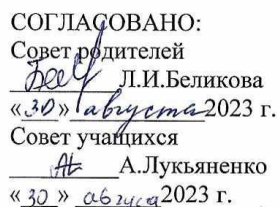 СОГЛАСОВАНО:
Совет родителей
Л.И.Беликова
«30» августа 2023 г.
Совет учащихся
А.Лукьяненко
«30» августа 2023 г.